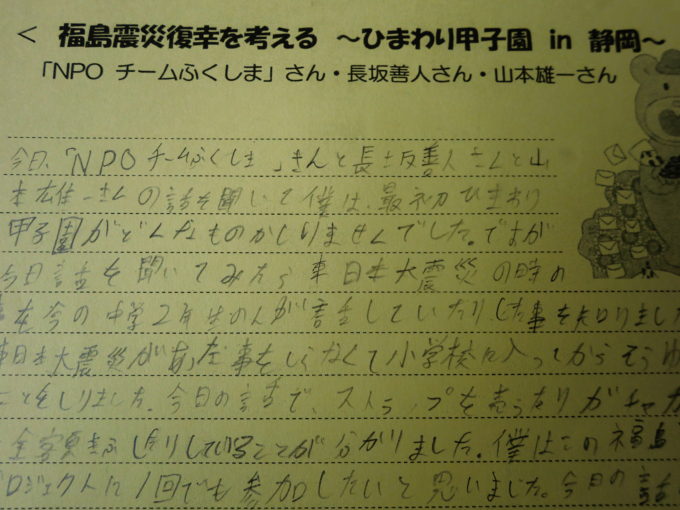 ＜ 福島震災復幸を考える ～ひまわり甲子園 in 静岡～
「NPO チームふくしま」さん・長坂善人さん・山本雄一さん
今日、「NPO チームふくしま」さんと長坂善人さんと山
本雄一さんの話を聞いて僕は、最初ひまわり
甲子園がどんなものかしりませんでした。ですが
今日話を聞いてみたら東日本大震災の時の
事を今の中学2年生の人が話していたりした事を知りました
東日本大震災があった事をしらなくて小学校に入ってからそうゆ
ことをしりました。今日の話で、ストラップを売ったりガチャガ
全部寄ふしたりしていることが分かりました。僕はこの福島
プロジェクトに1回でも参加したいと思いました。今日の話を